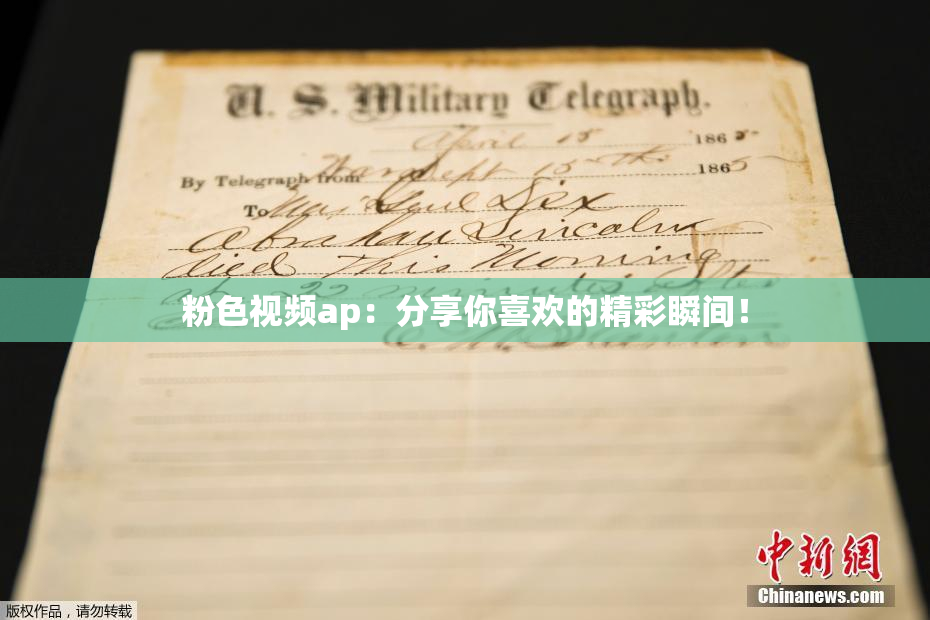 U. S. Military Telegraph.
April 15 1865
By Telegraph from War Dept 15th 1865
To Maj Genl Dix
Abraham Lincoln
died This Morning
at 22 minutes after
粉色视频ap：分享你喜欢的精彩瞬间！
E. M. Stanton
中新网
Chinanews.com
版权作品，请勿转载